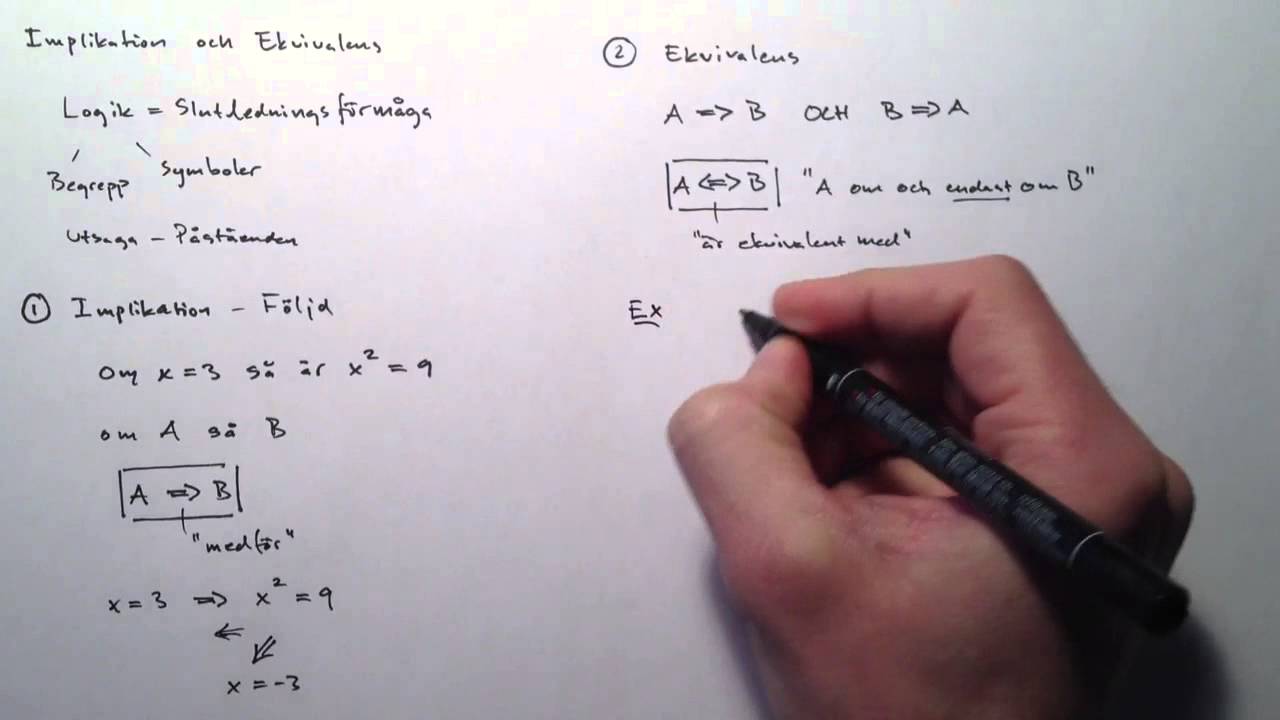 Implikation och Ekvivalens
Logik = Slutledningsförmåga
Begrepp
Symboler
Utsaga – Påståenden
① Implikation – Följd
Om x = 3 så är x² = 9
om A så B
A => B
"medför"
x = 3 => x² = 9
←
⇙
x = -3
② Ekvivalens
A => B OCH B => A
A <=> B "A om och endast om B"
"är ekvivalent med"
Ex